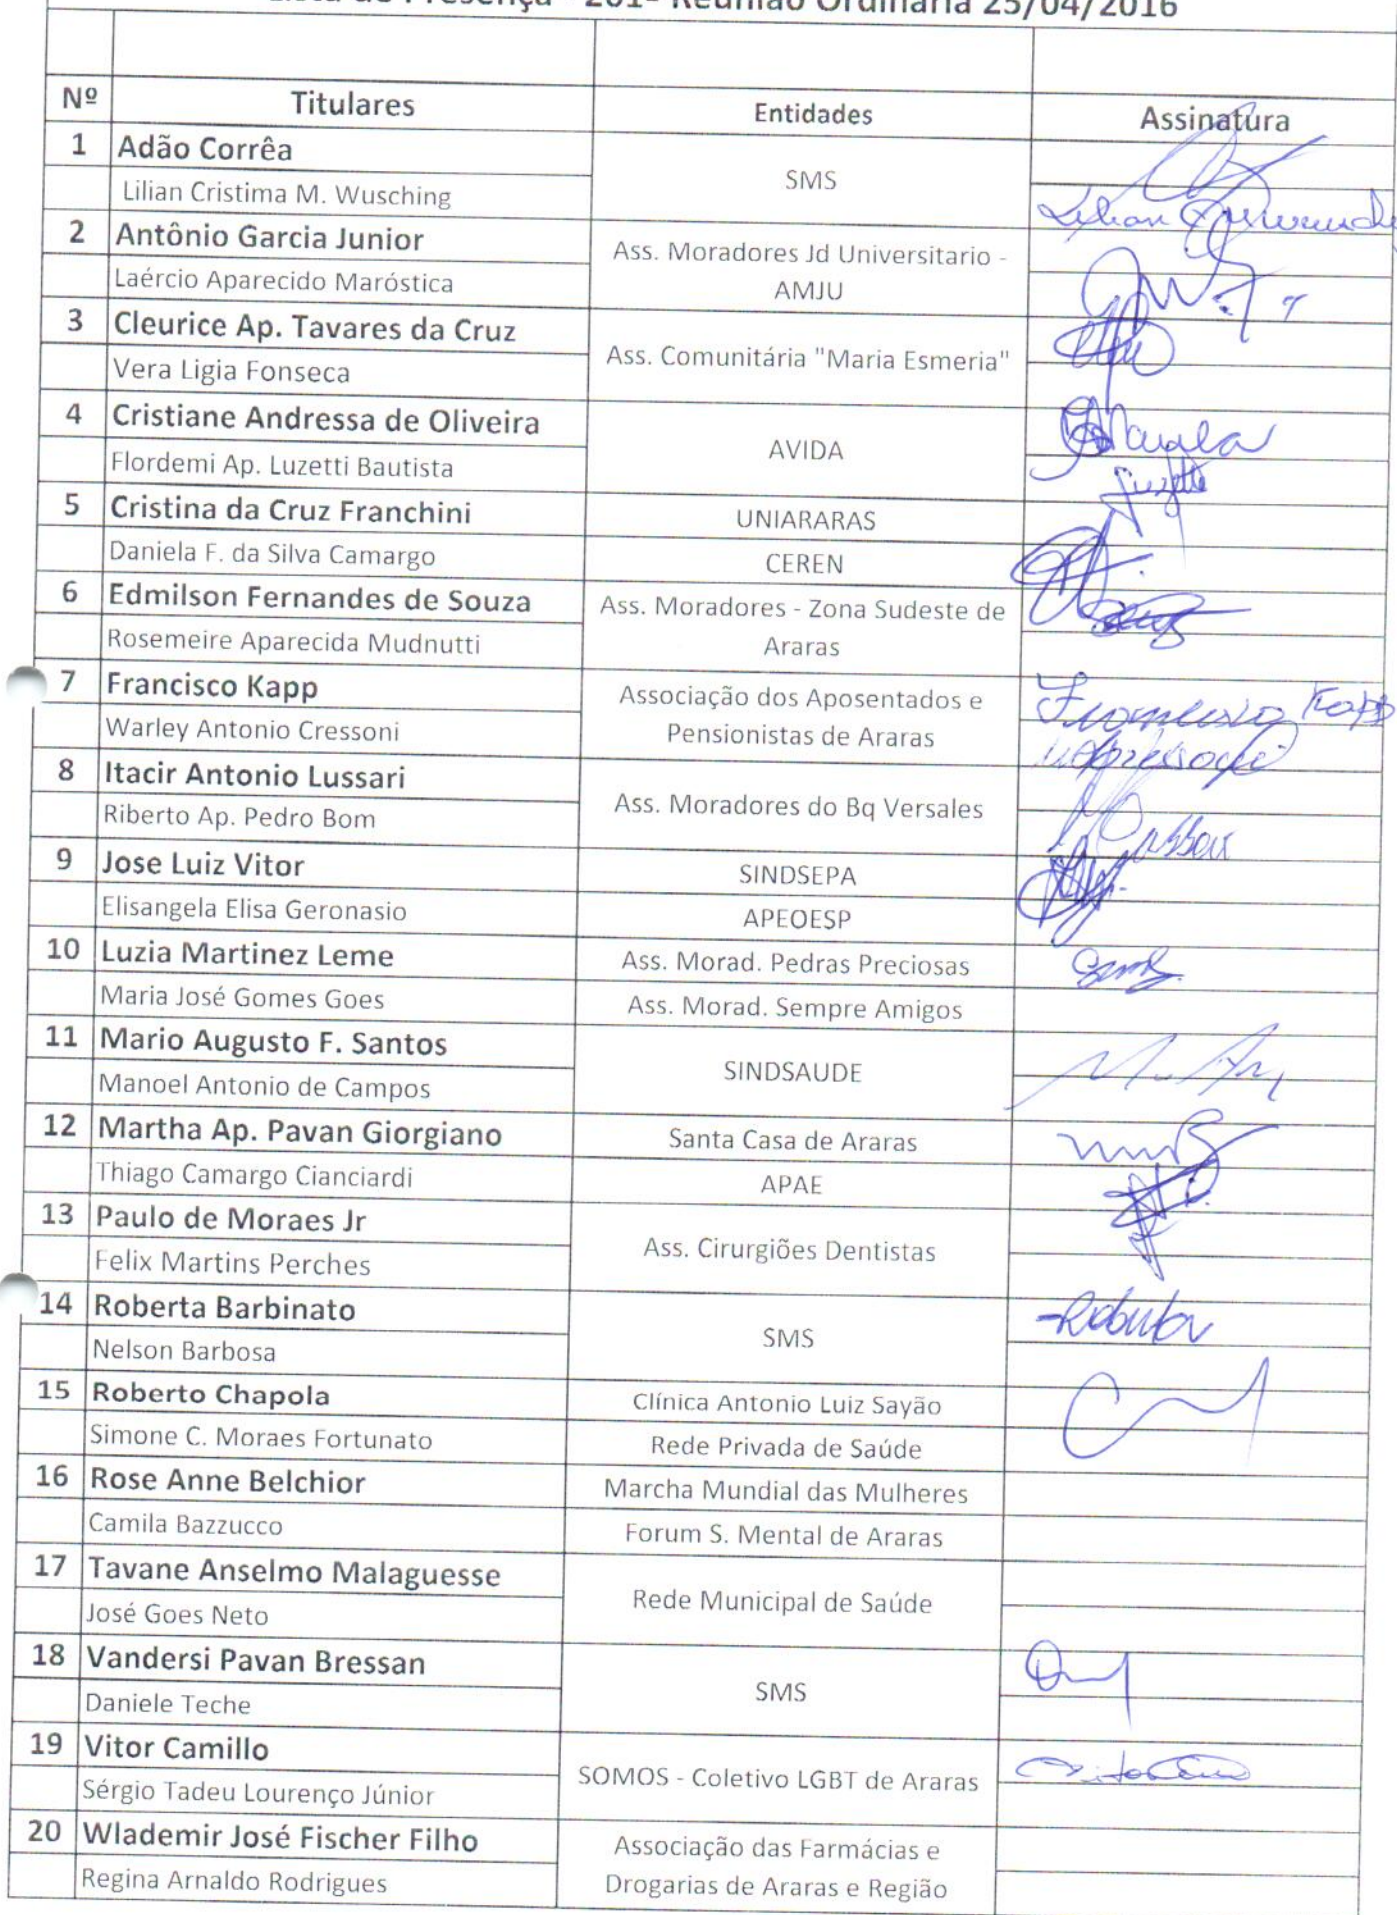 Lista de Presença - 201ª Reunião Ordinária 25/04/2016
Nº Titulares Entidades Assinatura
1 Adão Corrêa
SMS
Lilian Cristima M. Wusching
Lilian
2 Antônio Garcia Junior
Ass. Moradores Jd Universitario -
AMJU
Laércio Aparecido Maróstica
3 Cleurice Ap. Tavares da Cruz
Ass. Comunitária "Maria Esmeria"
Vera Ligia Fonseca
4 Cristiane Andressa de Oliveira
AVIDA
Flordemi Ap. Luzetti Bautista
5 Cristina da Cruz Franchini UNIARARAS
Daniela F. da Silva Camargo CEREN
6 Edmilson Fernandes de Souza
Ass. Moradores - Zona Sudeste de
Araras
Rosemeire Aparecida Mudnutti
7 Francisco Kapp
Associação dos Aposentados e
Pensionistas de Araras
Francisco Kapp
Warley Antonio Cressoni
8 Itacir Antonio Lussari
Ass. Moradores do Bq Versales
Riberto Ap. Pedro Bom
9 Jose Luiz Vitor SINDSEPA
Elisangela Elisa Geronasio APEOESP
10 Luzia Martinez Leme Ass. Morad. Pedras Preciosas
Maria José Gomes Goes Ass. Morad. Sempre Amigos
11 Mario Augusto F. Santos
SINDSAUDE
Manoel Antonio de Campos
12 Martha Ap. Pavan Giorgiano Santa Casa de Araras
Thiago Camargo Cianciardi APAE
13 Paulo de Moraes Jr
Ass. Cirurgiões Dentistas
Felix Martins Perches
14 Roberta Barbinato
SMS
Roberta
Nelson Barbosa
15 Roberto Chapola Clínica Antonio Luiz Sayão
Simone C. Moraes Fortunato Rede Privada de Saúde
16 Rose Anne Belchior Marcha Mundial das Mulheres
Camila Bazzucco Forum S. Mental de Araras
17 Tavane Anselmo Malaguesse
Rede Municipal de Saúde
José Goes Neto
18 Vandersi Pavan Bressan
SMS
Daniele Teche
19 Vitor Camillo
SOMOS - Coletivo LGBT de Araras
Sérgio Tadeu Lourenço Júnior
20 Wlademir José Fischer Filho
Associação das Farmácias e
Drogarias de Araras e Região
Regina Arnaldo Rodrigues